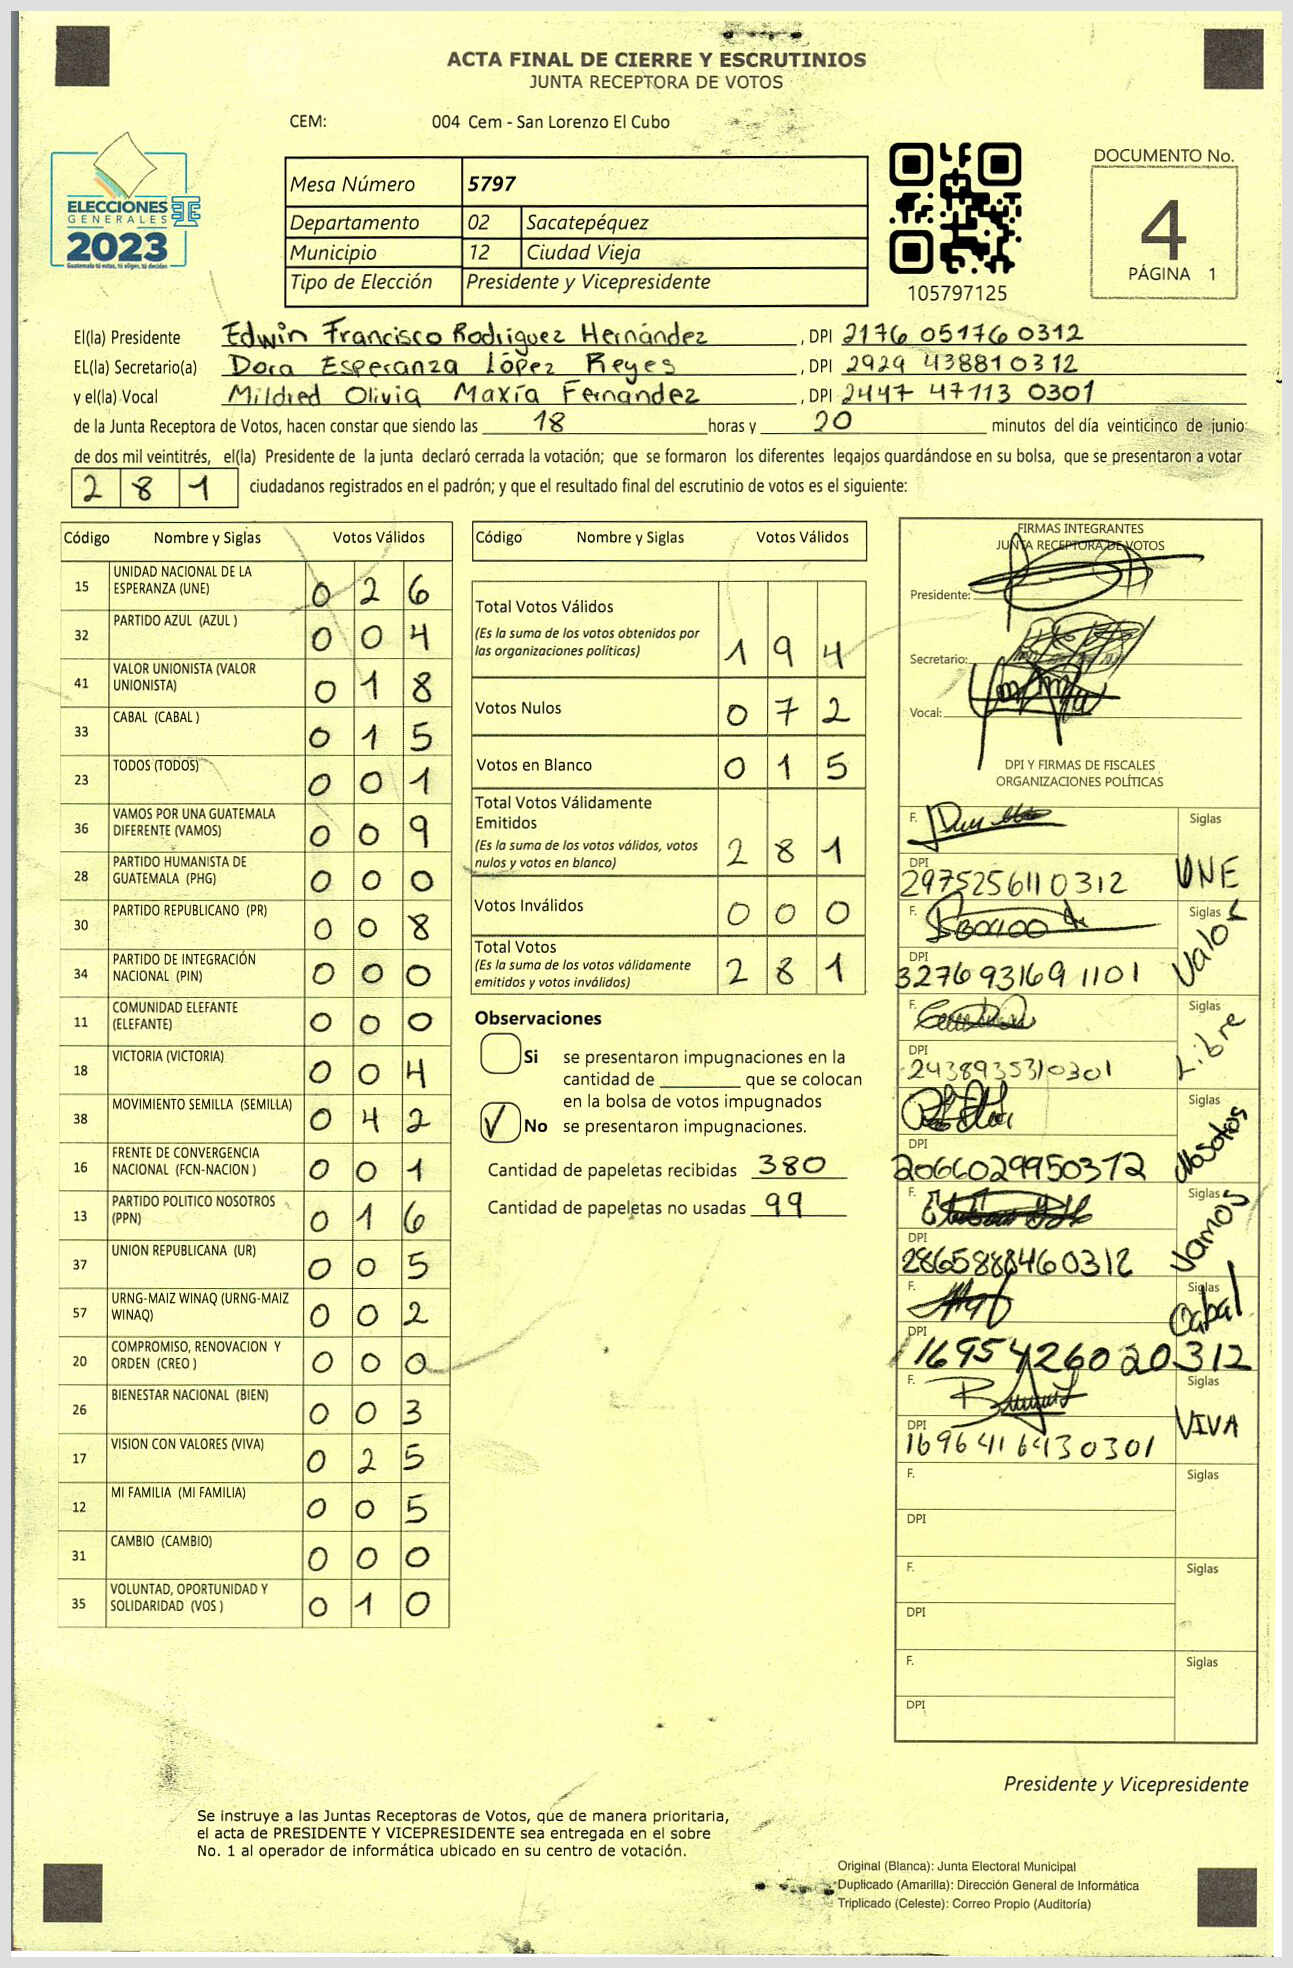 ACTA FINAL DE CIERRE Y ESCRUTINIOS
JUNTA RECEPTORA DE VOTOS
CEM: 004 Cem - San Lorenzo El Cubo
ELECCIONES
GENERALES
2023
Guatemala tú votas, tú eliges, tú decides
Mesa Número 5797
Departamento 02 Sacatepéquez
Municipio 12 Ciudad Vieja
Tipo de Elección Presidente y Vicepresidente
105797125
DOCUMENTO No.
4
PÁGINA 1
El(la) Presidente Edwin Francisco Rodríguez Hernández, DPI 2176 05176 0312
EL(la) Secretario(a) Dora Esperanza López Reyes, DPI 2929 43881 0312
y el(la) Vocal Mildred Olivia Maxía Fernandez, DPI 2447 47113 0301
de la Junta Receptora de Votos, hacen constar que siendo las 18 horas y 20 minutos del día veinticinco de junio
de dos mil veintitrés, el(la) Presidente de la junta declaró cerrada la votación; que se formaron los diferentes legajos guardándose en su bolsa, que se presentaron a votar
2 8 1 ciudadanos registrados en el padrón; y que el resultado final del escrutinio de votos es el siguiente:
Código Nombre y Siglas Votos Válidos
15 UNIDAD NACIONAL DE LA ESPERANZA (UNE) 0 2 6
32 PARTIDO AZUL (AZUL ) 0 0 4
41 VALOR UNIONISTA (VALOR UNIONISTA) 0 1 8
33 CABAL (CABAL ) 0 1 5
23 TODOS (TODOS) 0 0 1
36 VAMOS POR UNA GUATEMALA DIFERENTE (VAMOS) 0 0 9
28 PARTIDO HUMANISTA DE GUATEMALA (PHG) 0 0 0
30 PARTIDO REPUBLICANO (PR) 0 0 8
34 PARTIDO DE INTEGRACIÓN NACIONAL (PIN) 0 0 0
11 COMUNIDAD ELEFANTE (ELEFANTE) 0 0 0
18 VICTORIA (VICTORIA) 0 0 4
38 MOVIMIENTO SEMILLA (SEMILLA) 0 4 2
16 FRENTE DE CONVERGENCIA NACIONAL (FCN-NACION ) 0 0 1
13 PARTIDO POLITICO NOSOTROS (PPN) 0 1 6
37 UNION REPUBLICANA (UR) 0 0 5
57 URNG-MAIZ WINAQ (URNG-MAIZ WINAQ) 0 0 2
20 COMPROMISO, RENOVACION Y ORDEN (CREO ) 0 0 0
26 BIENESTAR NACIONAL (BIEN) 0 0 3
17 VISION CON VALORES (VIVA) 0 2 5
12 MI FAMILIA (MI FAMILIA) 0 0 5
31 CAMBIO (CAMBIO) 0 0 0
35 VOLUNTAD, OPORTUNIDAD Y SOLIDARIDAD (VOS ) 0 1 0
Código Nombre y Siglas Votos Válidos
Total Votos Válidos
(Es la suma de los votos obtenidos por
las organizaciones políticas) 1 9 4
Votos Nulos 0 7 2
Votos en Blanco 0 1 5
Total Votos Válidamente
Emitidos
(Es la suma de los votos válidos, votos
nulos y votos en blanco) 2 8 1
Votos Inválidos 0 0 0
Total Votos
(Es la suma de los votos válidamente
emitidos y votos inválidos) 2 8 1
Observaciones
Si se presentaron impugnaciones en la
cantidad de ________ que se colocan
en la bolsa de votos impugnados
No se presentaron impugnaciones.
Cantidad de papeletas recibidas 380
Cantidad de papeletas no usadas 99
FIRMAS INTEGRANTES
JUNTA RECEPTORA DE VOTOS
Presidente:
Secretario:
Vocal:
DPI Y FIRMAS DE FISCALES
ORGANIZACIONES POLÍTICAS
F. Siglas
DPI 2975256110312 UNE
F. Siglas
DPI 3276 93169 1101 Valor
F. Siglas
DPI 2438935310301 Libre
F. Siglas
DPI 2066029950312 Nosotros
F. Siglas
DPI 2865888460312 Vamos
F. Siglas
DPI 1695426020312 Cabal
F. Siglas
DPI 1696416430301 VIVA
F. Siglas
DPI
F. Siglas
DPI
F. Siglas
DPI
Presidente y Vicepresidente
Se instruye a las Juntas Receptoras de Votos, que de manera prioritaria,
el acta de PRESIDENTE Y VICEPRESIDENTE sea entregada en el sobre
No. 1 al operador de informática ubicado en su centro de votación.
Original (Blanca): Junta Electoral Municipal
Duplicado (Amarilla): Dirección General de Informática
Triplicado (Celeste): Correo Propio (Auditoría)